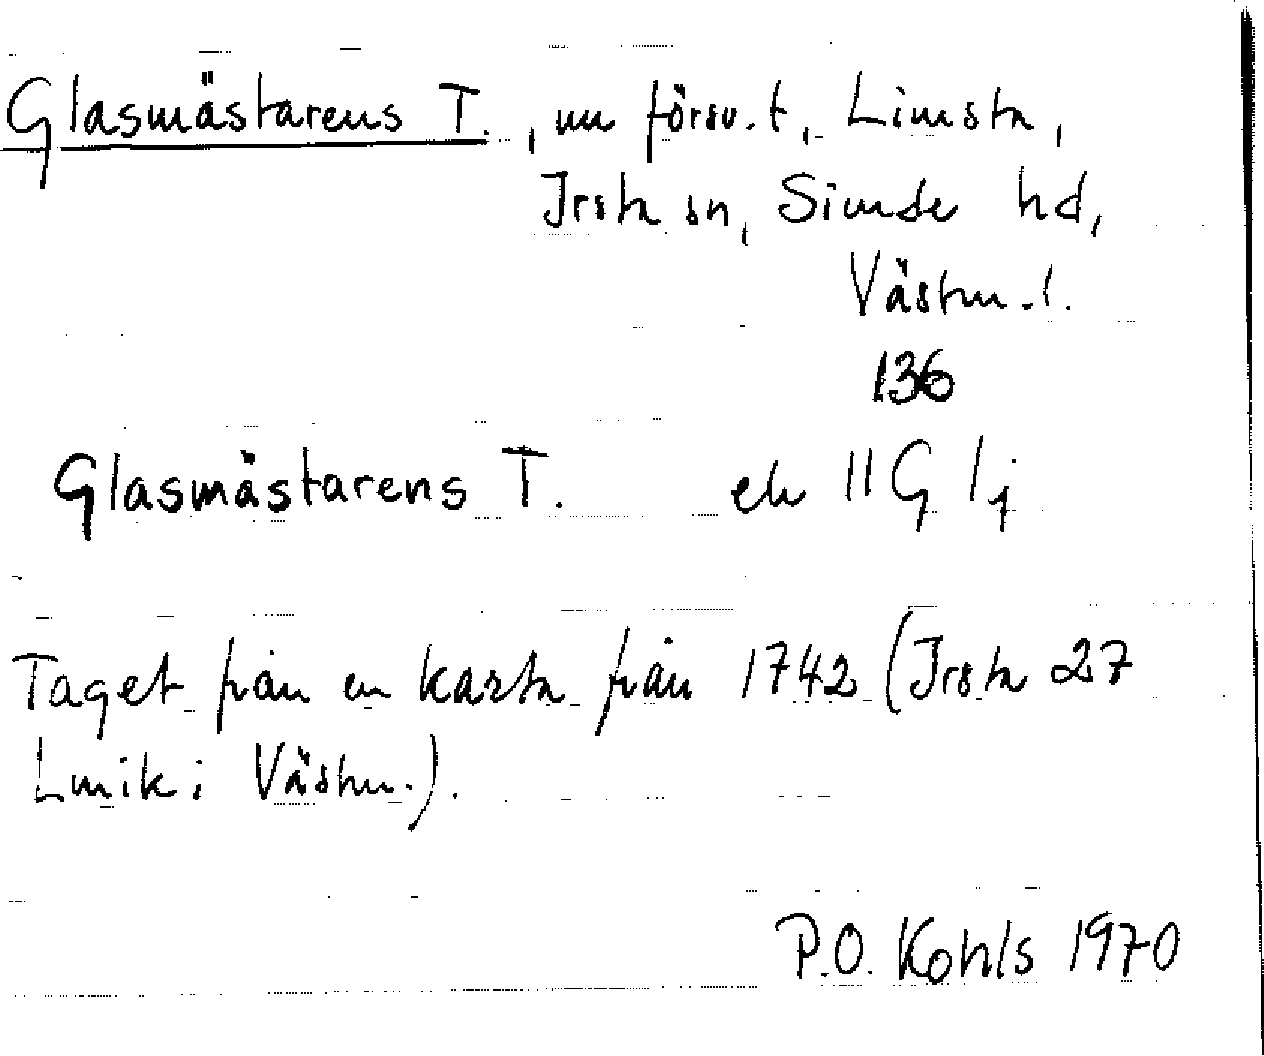 Glasmästarens T., nu försv. t, Limsta,
Irsta sn, Siende hd,
Västm. l.
136
Glasmästarens T. ek 11G 1j
Taget från en karta från 1742 (Irsta 27
Lmik i Västm.).
P.O. Kohls 1970